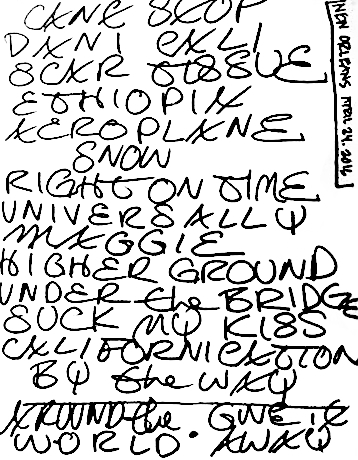 CANT STOP
DANI CALI
SCAR TISSUE
ETHIOPIA
AEROPLANE
SNOW
RIGHT ON TIME
UNIVERSALLY
MAGGIE
HIGHER GROUND
UNDER the BRIDGE
SUCK MY KISS
CALIFORNICATION
BY the WAY
AROUND the GIVE IT
WORLD · AWAY
NEW ORLEANS APRIL 24. 2016